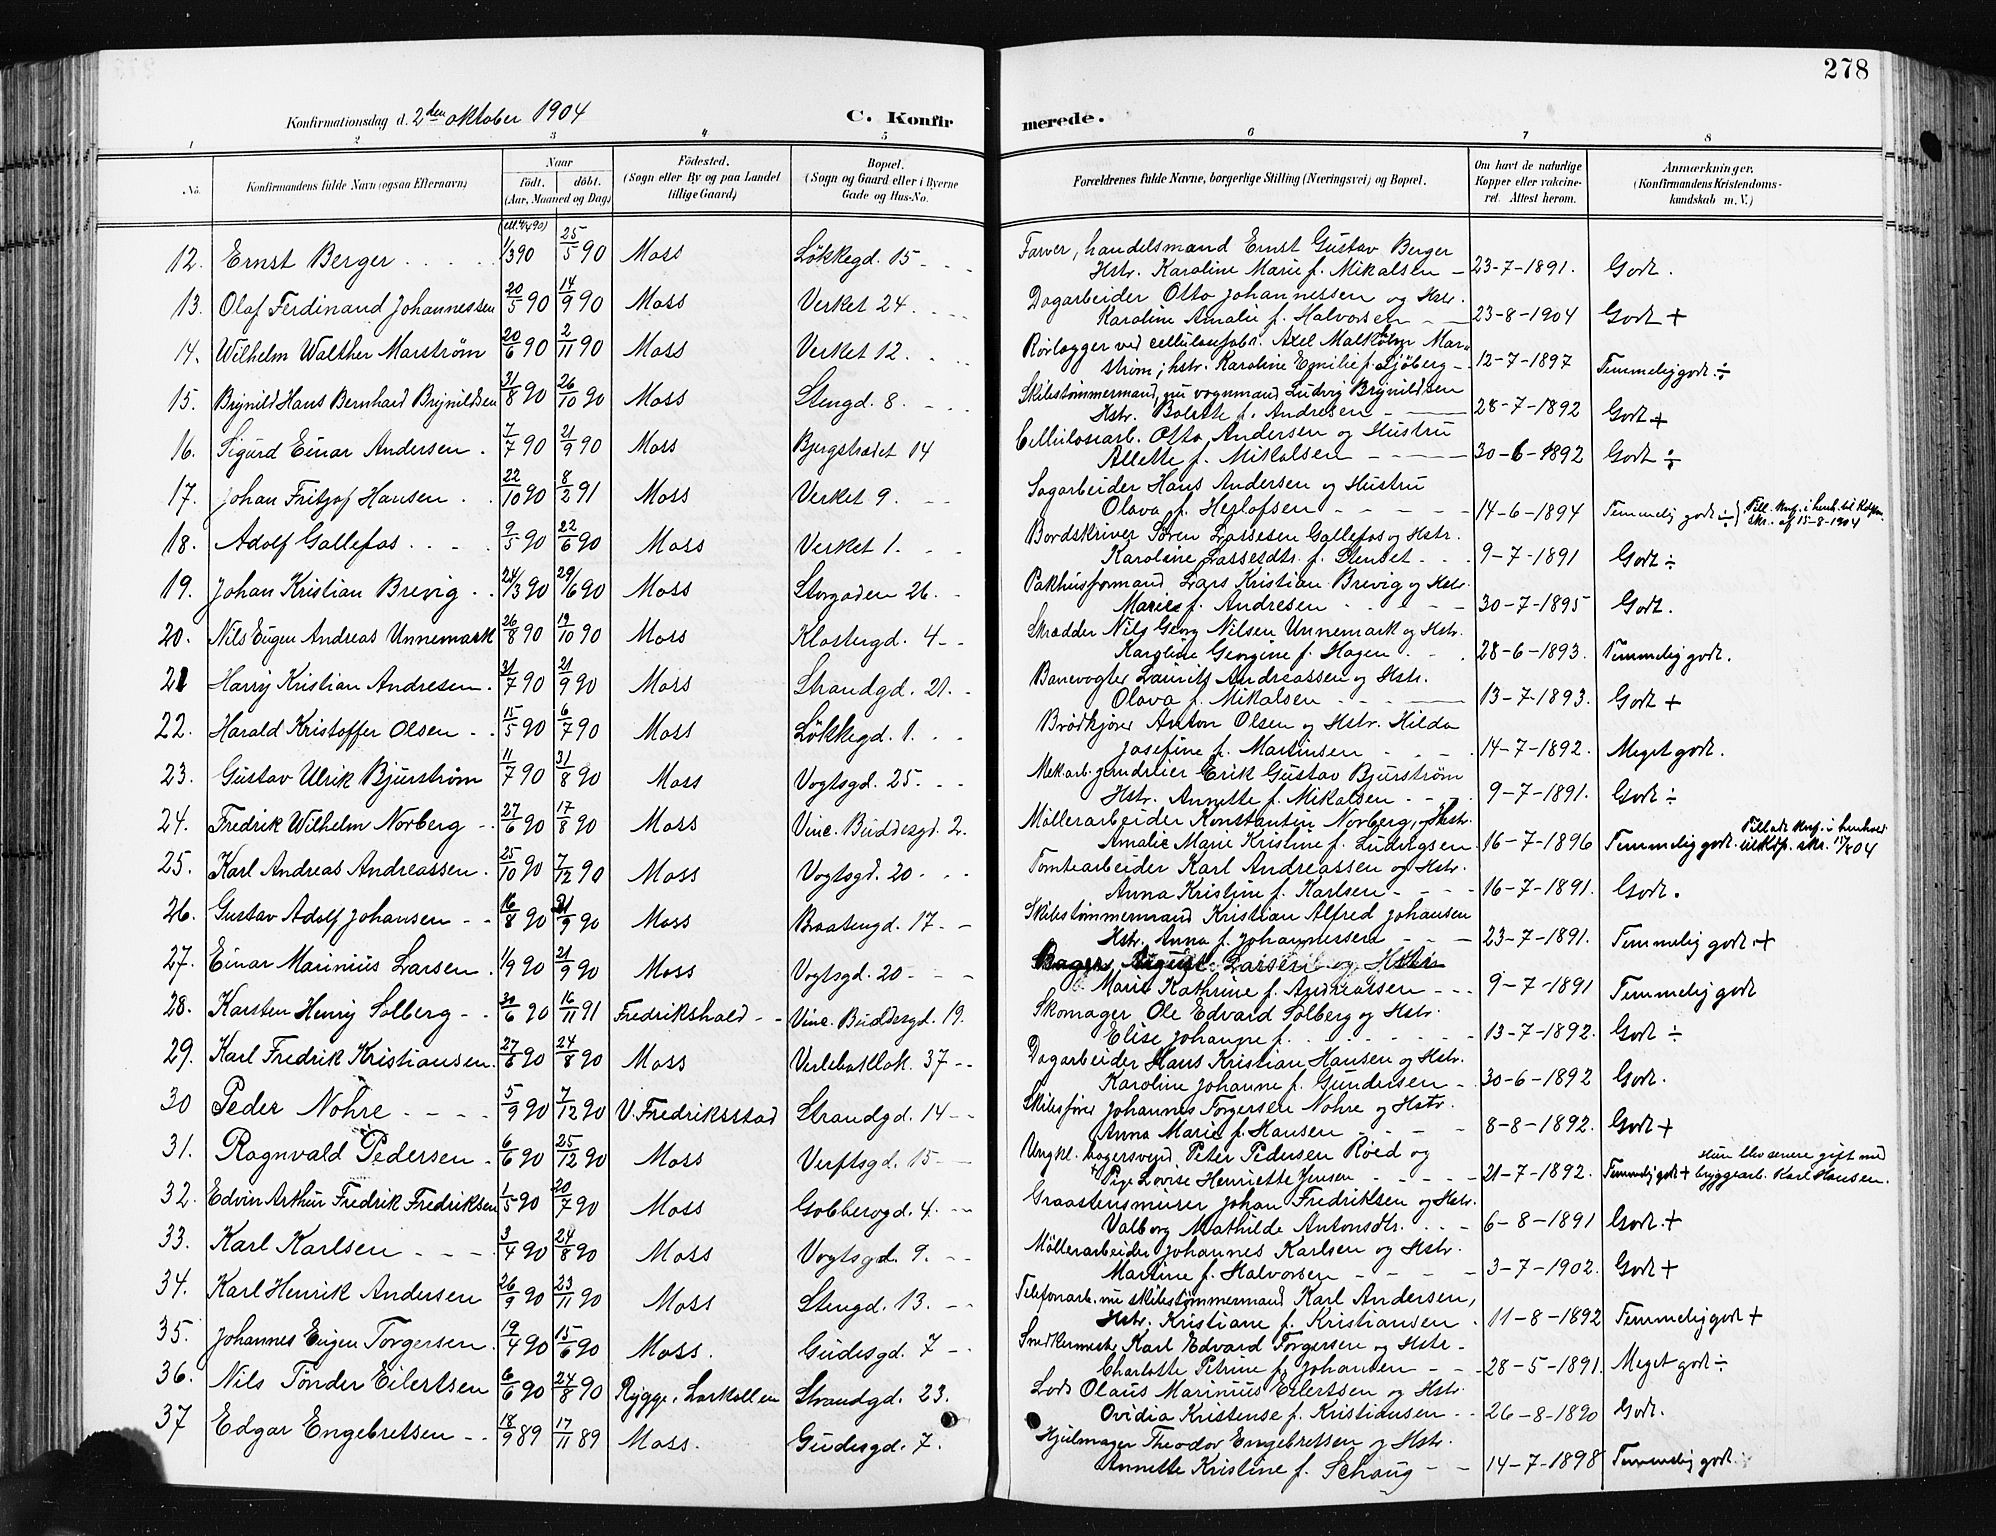 278
Konfirmationsdag d. 2den oktober 1904
C. Konfir
merede.
1 2 3 4 5 6 7 8
No.
Konfirmandens fulde Navn (ogsaa Efternavn)
Naar
født. døbt.
(Aar, Maaned og Dag)
Födested.
(Sogn eller By og paa Landet
tillige Gaard)
Bopæl.
(Sogn og Gaard eller i Byerne
Gade og Hus-No.
Forældrenes fulde Navne, borgerlige Stilling (Næringsvei) og Bopæl.
Om havt de naturlige
Kopper eller vakcine-
ret. Attest herom.
Anmærkninger,
(Konfirmandens Kristendoms-
kundskab m. V.)
12. Ernst Berger 1/3 90 25/5 90 Moss Løkkegd. 15 Farver, handelsmand Ernst Gustav Berger
Hstr. Karoline Marie f. Mikalsen 23-7-1891. Godt.
13. Olaf Ferdinand Johannessen 20/5 90 14/9 90 Moss Verket 24 Dagarbeider Otto Johannessen og Hstr.
Karoline Amalie f. Halvorsen 23-8-1904 Godt +
14. Wilhelm Walther Marstrøm 20/6 90 2/11 90 Moss Verket 12. Rørlægger ved cellulosefabr. Axel Malkolm Mar-
strøm; hstr. Karoline Emilie f. Sjøberg 12-7-1897 Temmelig godt ÷
15. Brynild Hans Bernhard Brynildsen 31/8 90 26/10 90 Moss Stengd. 8. Skibstømmermand, nu vognmand Ludvig Brynildsen
Hstr. Bolette f. Andresen 28-7-1892 Godt +
16. Sigurd Einar Andersen 7/7 90 21/9 90 Moss Bjergstrædet 14 Cellulosearb. Otto Andersen og Hustru
Allette f. Mikalsen 30-6-1892 Godt ÷
17. Johan Fritjof Hansen 22/10 90 8/2 91 Moss Verket 9. Sagarbeider Hans Andersen og Hustru
Olava f. Hejlofsen 14-6-1894 Temmelig godt ÷
skr. af 15-8-1904
18. Adolf Gallefos 9/5 90 22/6 90 Moss Verket 1. Bordskriver Søren Lassesen Gallefos og Hstr.
Karoline Lassesdtr. f. Stenset 9-7-1891 Godt ÷
19. Johan Kristian Brevig 24/3 90 29/6 90 Moss Storgaden 26. Pakhusformand Lars Kristian Brevig og Hstr.
Marie f. Andresen 30-7-1895 Godt.
20. Nils Eugen Andreas Unnemark 26/8 90 19/10 90 Moss Klostergd. 4 Skrædder Nils Georg Nilsen Unnemark og Hstr.
Karoline Georgine f. Hagen 28-6-1893. Temmelig godt.
21 Harry Kristian Andresen 31/7 90 21/9 90 Moss Strandgd. 21. Banevogter Laurits Andreassen og Hstr.
Olava f. Mikalsen 13-7-1893. Godt +
22. Harald Kristoffer Olsen 15/5 90 6/7 90 Moss Løkkegd. 1. Brødkjører Anton Olsen og Hstr. Hilda
Josefine f. Martinsen 14-7-1892. Meget godt.
23. Gustav Ulrik Bjurstrøm 11/7 90 31/8 90 Moss Vogtsgd. 25. Mek.arb. Erik Gustav Bjurstrøm
Hstr. Annette f. Mikalsen 9-7-1891. Godt ÷
24. Fredrik Wilhelm Norberg 27/6 90 17/8 90 Moss Vinc. Buddesgd. 2. Møllerarbeider Konstantin Norberg, og Hstr.
Amalie Marie Kristine f. Ludvigsen 16-7-1896 Temmelig godt.
25. Karl Andreas Andreassen 25/10 90 7/12 90 Moss Vogtsgd. 20 Tomtearbeider Karl Andreassen og Hstr.
Anna Kristine f. Karlsen 16-7-1891. Godt.
26. Gustav Adolf Johansen 16/8 90 21/9 90 Moss Baatengd. 17. Skibstømmermand Kristian Alfred Johansen
Hstr. Anna f. Johannessen 23-7-1891. Temmelig godt +
27. Einar Marinius Larsen 1/9 90 21/9 90 Moss Vogtsgd. 20 Bager August Larsen og Hstr.
Marie Kathrine f. Andreassen 9-7-1891 Temmelig godt
28. Karsten Henry Solberg 30/6 90 16/11 91 Fredrikshald Vinc. Buddesgd. 19. Skomager Ole Edvard Solberg og Hstr.
Elise Johanne f. 13-7-1892. Godt ÷
29. Karl Fredrik Kristiansen 27/6 90 24/8 90 Moss Verlebakløk. 37 Dagarbeider Hans Kristian Hansen og Hstr.
Karoline Johanne f. Gundersen 30-6-1892 Godt.
30 Peder Nohre 5/9 90 7/12 90 V. Fredriksstad Strandgd. 14 Skibsfører Johannes Torgersen Nohre og Hstr.
Anna Marie f. Hansen 8-8-1892. Godt +
31. Ragnvald Pedersen 6/6 90 25/12 90 Moss Verftsgd. 15 Ungkl. bagersvend Peter Pedersen Røed og
Pige Lovise Henriette Jensen 21-7-1892. Temmelig godt + Hun blev senere gift med
bryggearb. Karl Hansen.
32. Edvin Arthur Fredrik Fredriksen 1/5 90 20/7 90 Moss Gobbersgd. 4. Graastensmurer Johan Fredriksen og Hstr.
Valborg Mathilde Antonsdtr. 6-8-1891 Godt. +
33. Karl Karlsen 3/4 90 24/8 90 Moss Vogtsgd. 9. Møllerarbeider Johannes Karlsen og Hstr.
Martine f. Halvorsen 3-7-1902. Godt +
34. Karl Henrik Andersen 26/9 90 23/11 90 Moss Stengd. 13. Telefonarb. nu skibstømmermand Karl Andersen,
Hstr. Kristiane f. Kristiansen 11-8-1892 Temmelig godt +
35. Johannes Eugen Torgersen 19/4 90 15/6 90 Moss. Gudesgd. 7 Snedkermestr. Karl Edvard Torgersen og Hstr.
Charlotte Petrine f. Johansen 28-5-1891. Meget godt ÷
36. Nils Tønder Eilertsen 6/6 90 24/8 90 Rygge, Larkollen Strandgd. 23. Lods Olaus Marinius Eilertsen og Hstr.
Ovidia Kristense f. Kristiansen 26-8-1890 Godt.
37 Edgar Engebretsen 18/9 89 17/11 89 Moss. Gudesgd. 7. Hjulmager Theodor Engebretsen og Hstr.
Annette Kristine f. Schaug 14-7-1898 Temmelig godt.